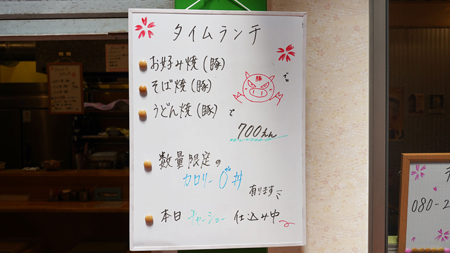 タイムランチ
お好み焼(豚)
そば焼(豚)
うどん焼(豚)で
豚
700えん
数量限定の
カロリー0丼
有ります
本日 チャーシュー 仕込み中
080-2